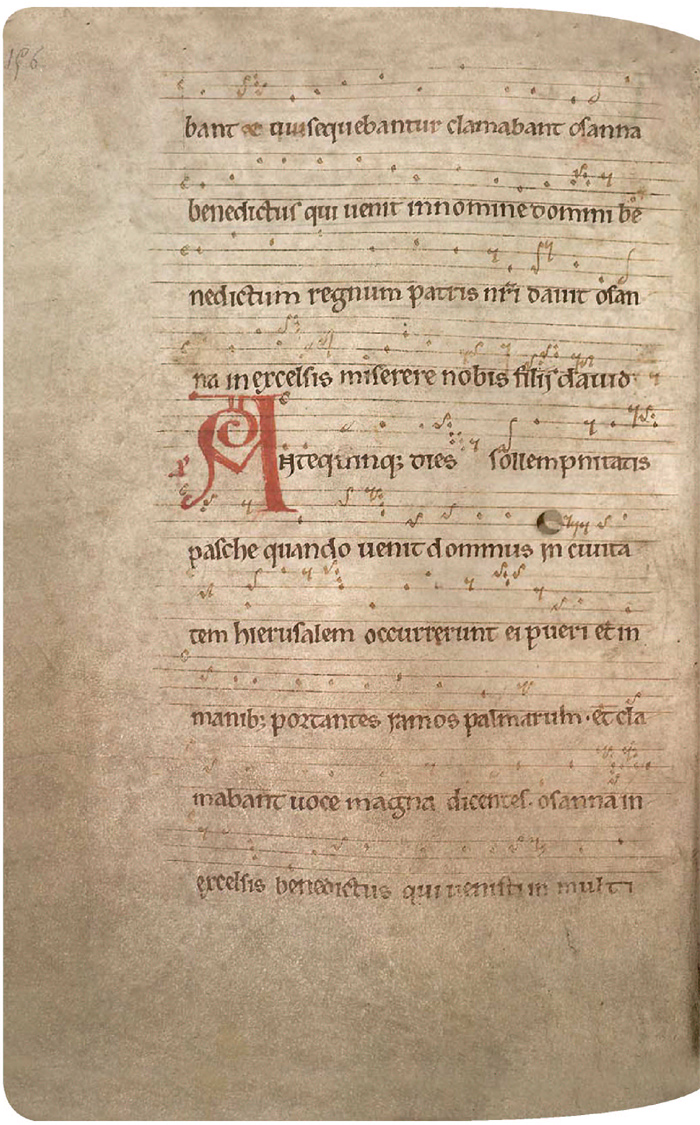 156
bant & qui sequebantur clamabant osanna
benedictus qui uenit innomine domini be
nedictum regnum patris nr̄i dauit osan
na in excelsis miserere nobis filij dauid
Antequinq; dies sollempnitatis
pasche quando uenit dominus in ciuita
tem hierusalem occurrerunt ei pueri et in
manib; portantes ramos palmarum · et cla
mabant uoce magna dicentes · osanna in
excelsis benedictus qui uenisti in multi